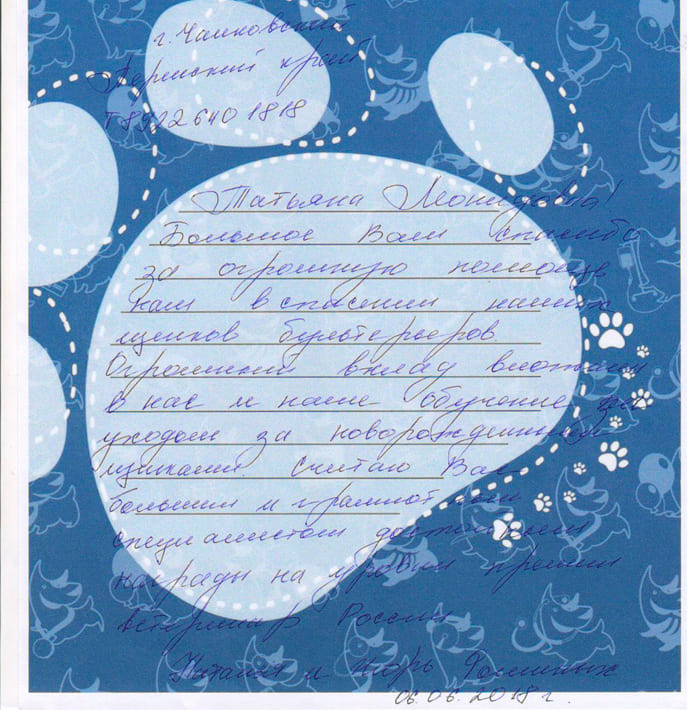 г. Чайковский
Пермский край
Т 8922 640 1818
Татьяна Леонидовна!
Большое Вам спасибо
за огромную помощь
нам в спасении наших
щенков бультерьеров.
Огромный вклад вложили
в нас и наше обучение за
уходом за новорожденными
щенками. Считаю Вас
большим и грамотным
специалистом достойным
награды на уровни премии
ветеринар России
Наталия и Игорь
06.06.2018 г.